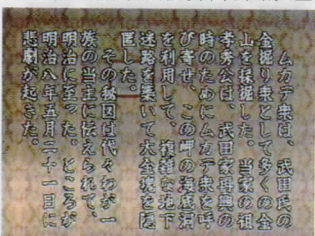 ムカテ衆は、武田氏の
金掘り衆として多くの金
山を採掘した。当家の祖
孝秀公は、武田家再興の
時のためにムカテ衆を呼
び寄せ、この岬の海底洞
を利用して、複雑な地下
迷路を築いて大金塊を隠
匿した。
その秘図は代々わが一
族の当主に伝えられて、
明治に至った。ところが
明治八年五月二十一日に
悲劇が起きた。